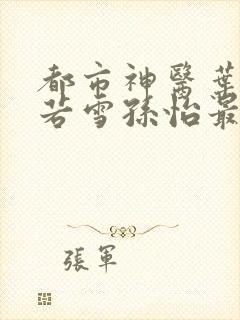 都市神醫葉
若雪孫怡最
張軍